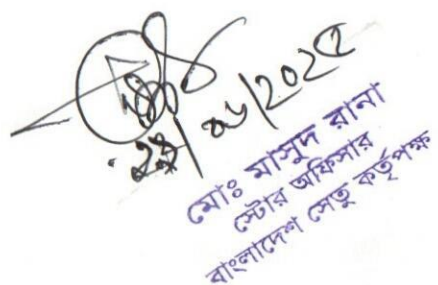 /০৬/২০২৫
মোঃ মাসুদ রানা
স্টোর অফিসার
বাংলাদেশ সেতু কর্তৃপক্ষ